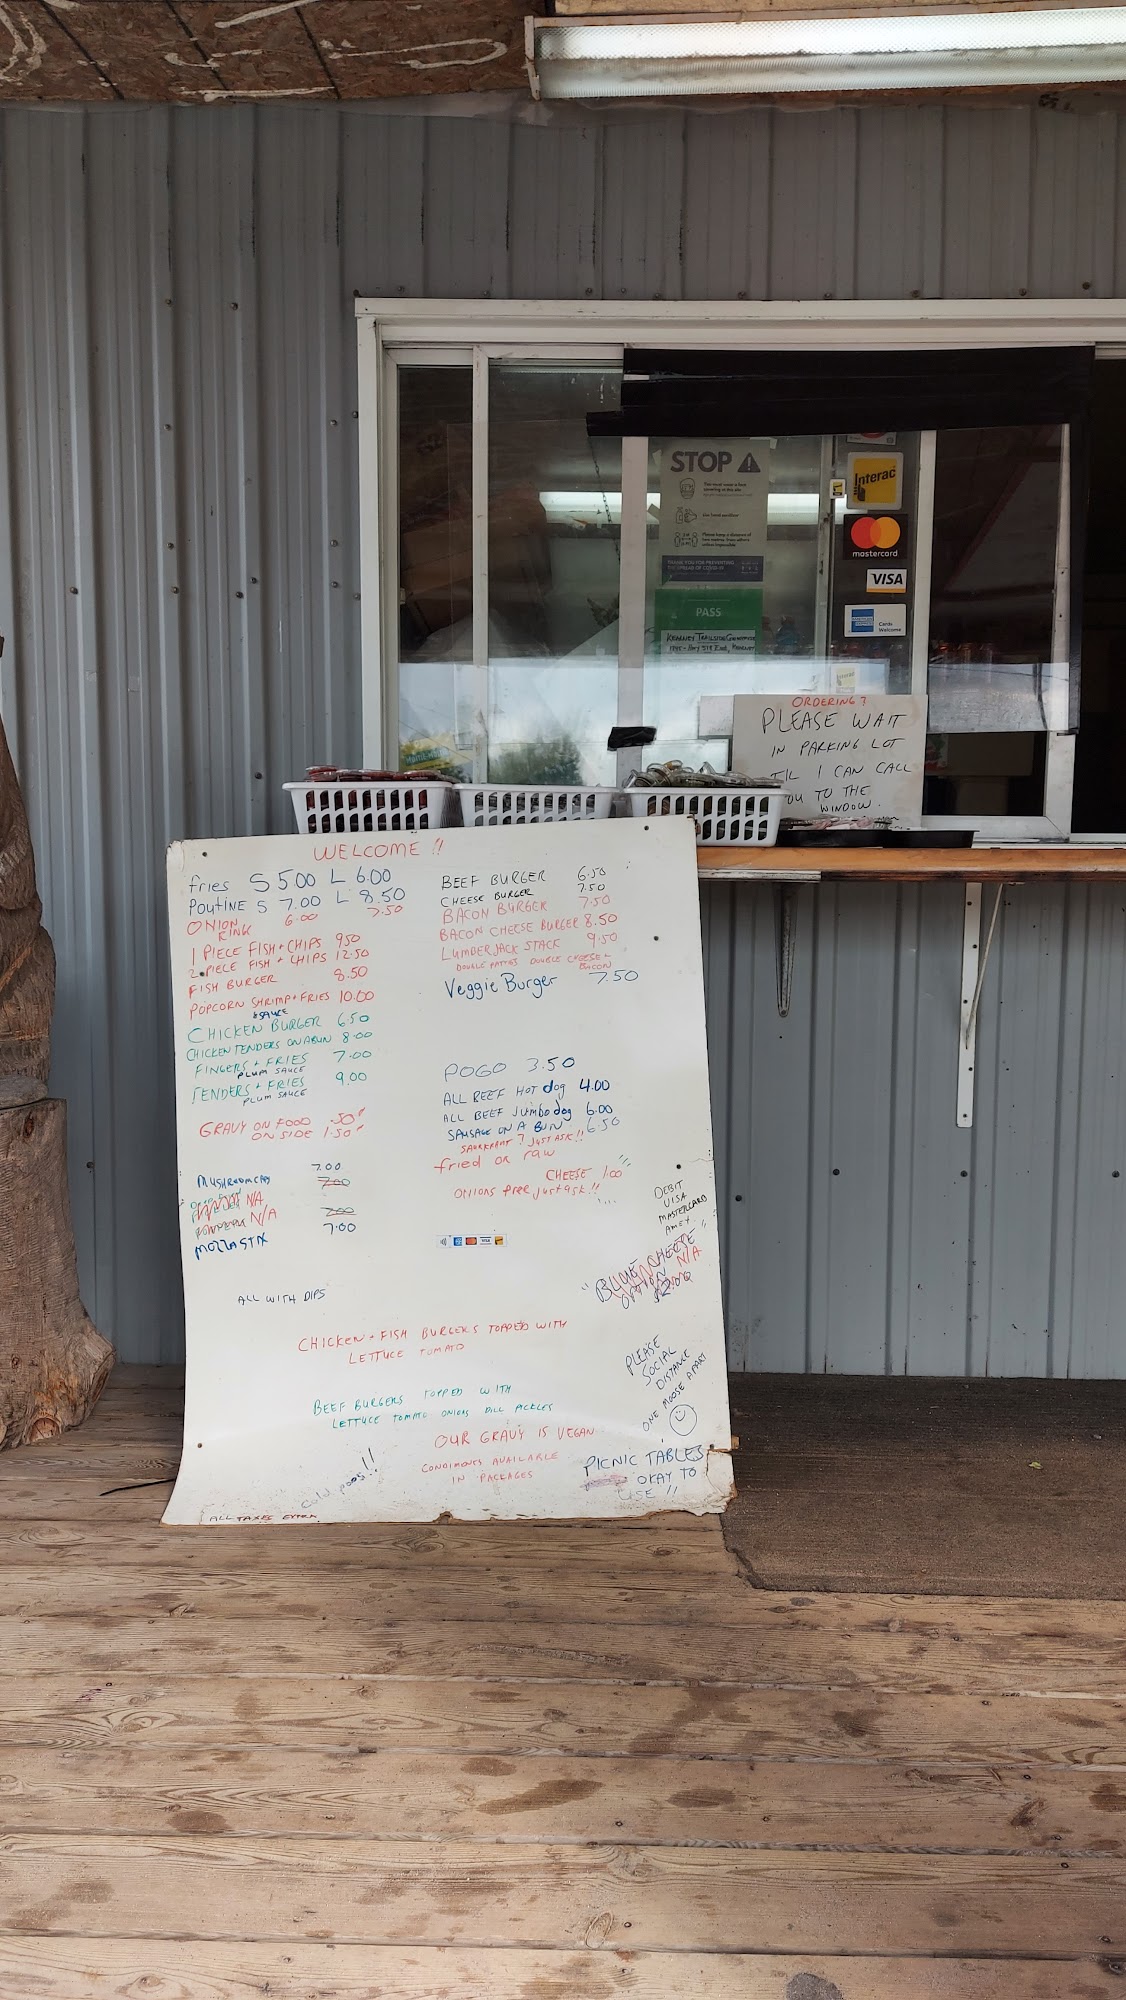 STOP
Use hand sanitizer
Please keep a distance of
THANK YOU FOR PREVENTING
THE SPREAD OF COVID-19
PASS
KEARNEY TRAILSIDE
HWY 518 EAST, KEARNEY
Interac
mastercard
VISA
Cards
Welcome
ORDERING?
PLEASE WAIT
IN PARKING LOT
TIL I CAN CALL
YOU TO THE
WINDOW.
WELCOME!!
fries S 5.00 L 6.00
POUTINE S 7.00 L 8.50
ONION
RING 6.00 7.50
1 PIECE FISH + CHIPS 9.50
2 PIECE FISH + CHIPS 12.50
FISH BURGER 8.50
POPCORN SHRIMP + FRIES 10.00
+ SAUCE
CHICKEN BURGER 6.50
CHICKEN TENDERS ON A BUN 8.00
FINGERS + FRIES 7.00
PLUM SAUCE
TENDERS + FRIES 9.00
PLUM SAUCE
GRAVY ON FOOD .50
ON SIDE 1.50
7.00
MUSHROOM CAPS 7.00
N/A
N/A 7.00
MOZZA STIX 7.00
ALL WITH DIPS
BEEF BURGER 6.50
CHEESE BURGER 7.50
BACON BURGER 7.50
BACON CHEESE BURGER 8.50
LUMBERJACK STACK 9.50
DOUBLE PATTIES DOUBLE CHEESE +
BACON
Veggie Burger 7.50
POGO 3.50
ALL BEEF HOT dog 4.00
ALL BEEF Jumbo dog 6.00
SAUSAGE ON A BUN 6.50
SAURKRAUT? JUST ASK!!
fried or raw
CHEESE 1.00
ONIONS free just ask!!
DEBIT
VISA
MASTERCARD
AMEX
"BLUE CHEESE"
OPTION N/A
CHICKEN + FISH BURGERS TOPPED WITH
LETTUCE TOMATO
BEEF BURGERS TOPPED WITH
LETTUCE TOMATO ONIONS DILL PICKLES
OUR GRAVY IS VEGAN
CONDIMENTS AVAILABLE
IN PACKAGES
PLEASE
SOCIAL
DISTANCE
ONE MOOSE APART
PICNIC TABLES
OKAY TO
USE!!
cold pops!!
ALL TAXES EXTRA